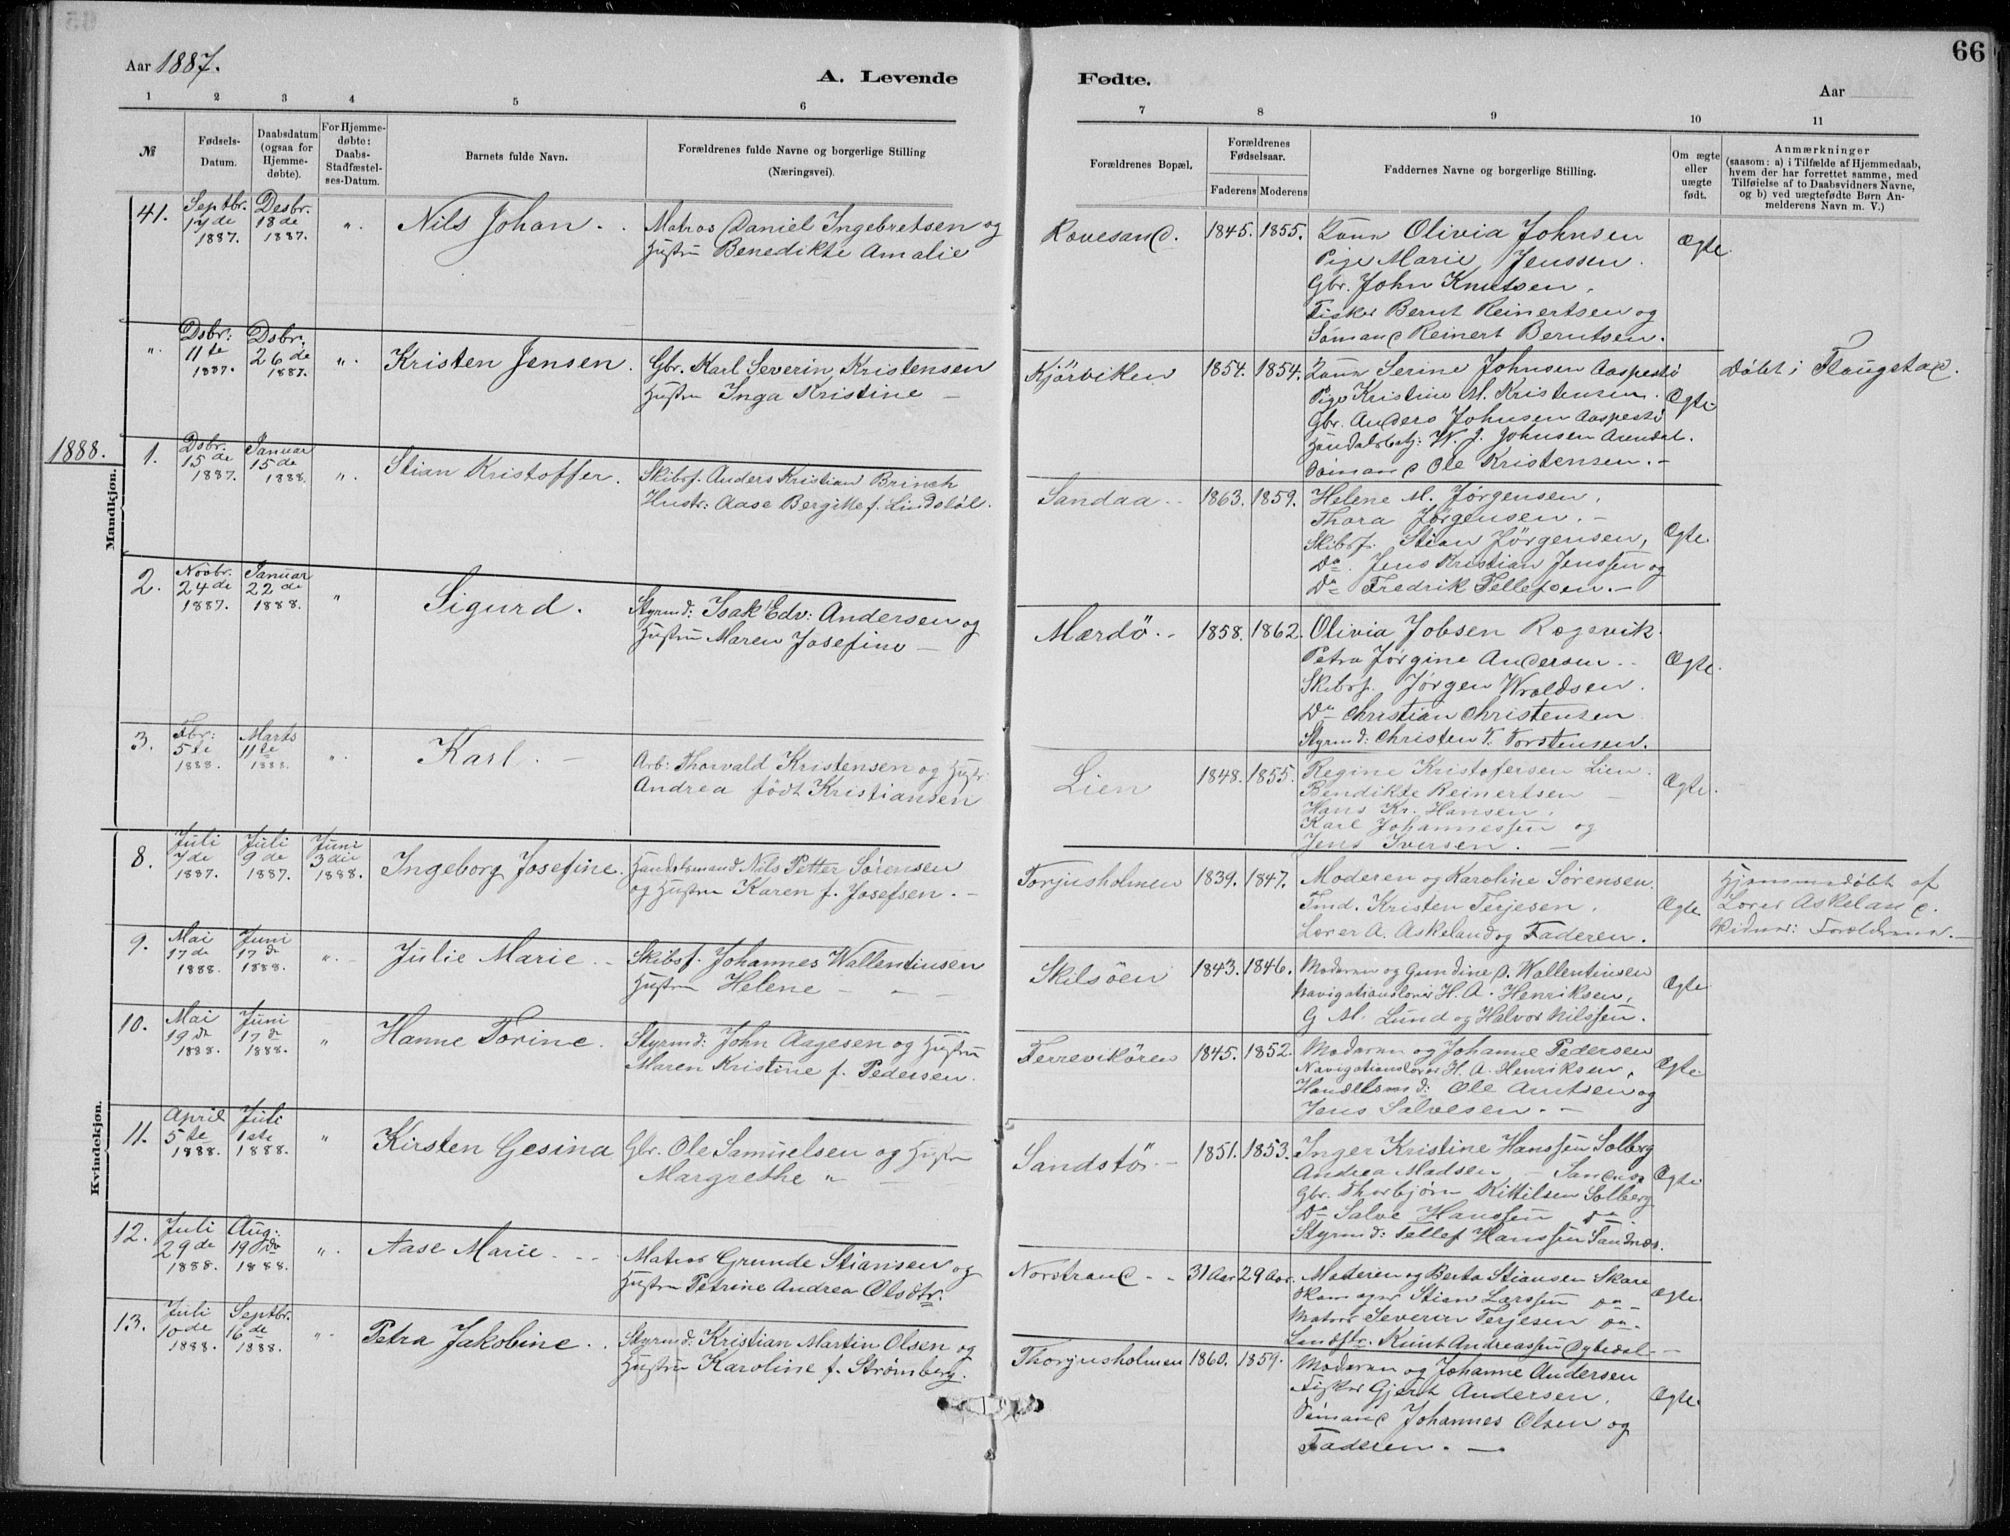 66
Aar 1887.
A. Levende Fødte.
Aar
1 2 3 4 5 6 7 8 9 10 11
№
Fødsels-Datum.
Daabsdatum (ogsaa for Hjemmedøbte).
For Hjemmedøbte: Daabs-Stadfæstelses-Datum.
Barnets fulde Navn.
Forældrenes fulde Navne og borgerlige Stilling (Næringsvei).
Forældrenes Bopæl.
Forældrenes Fødselsaar.
Faderens Moderens
Faddernes Navne og borgerlige Stilling.
Om ægte eller uægte født.
Anmærkninger
(saasom: a) i Tilfælde af Hjemmedaab, hvem der har forrettet samme, med Tilføielse af to Daabsvidners Navne, og b) ved uægtefødte Børn Anmelderens Navn m. V.)
Mandkjøn.
41. Septbr. 14de 1887. Desbr. 18de 1887. „. Nils Johan. .
Matros Daniel Ingebretsen og
Hustru Benedikte Amalie
Ravesand. 1845. 1855.
Kone Olivia Johnsen
Pige Marie Jenssen.
Gbr. John Knutsen.
Fisker Bernt Reinertsen og
Sømand Reinert Berntsen.
Ægte
„. Dsbr: 11te 1887. Dsbr. 26de 1887. „. Kristen Jensen.
Gbr. Karl Severin Kristensen
Hustru Inga Kristine —
Kjörviken 1854. 1854.
Kone Serine Johnsen Aaspestö
Pige Kristine M. Kristensen.
Gbr. Anders Johnsen Aaspestö
Handelsbetj: W. J. Johnsen Arendal.
Sömand Ole Kristensen. —
Ægte
Döbt i Flaugstad.
1888.
1. Dsbr. 15de 1887. Januar 15de 1888. „. Stian Kristoffer.
Skibsf. Anders Kristian Brinch
Hustr: Aase Bergitte f. Lindsböl.
Sandaa 1863. 1859.
Helene M. Jørgensen.
Thora Jørgensen. —
Skibsf. Stian Jörgensen,
Do. Jens Kristian Jenssen og
Do Fredrik Tellefsen. —
Ægte
2. Novbr. 24de 1887. Januar 22de 1888. „ Sigurd.
Styrmd: Isak Edv: Andersen og
Hustru Maren Josefine —
Mærdö. — 1858. 1862.
Olivia Jobsen Rægevik.
Petra Jørgine Andersen. .
Skibsf. Jørgen Wroldsen.
Do Christian Christensen
Styrmd: Christen T. Torstensen.
Ægte.
3. Fbr: 5te 1888. Marts 11te 1888. „. Karl. —
Arb: Thorvald Kristensen og Hustr:
Andrea født Kristiansen
Lien 1848. 1855.
Regine Kristofersen Lien.
Bendikte Reinertsen —
Hans Kr. Hansen.
Karl Johannessen og
Jens Iversen. —
Ægte.
Kvindekjøn.
8. Juli 7de 1887. Juli 9de 1887. Juni 3die 1888. Ingeborg Josefine.
Handelsmand Nils Petter Sørensen
og Hustru Karen f. Josefsen. —
Torjusholmen 1839. 1847.
Moderen og Karoline Sørensen.
Tmd. Kristen Terjesen.
Lærer A. Askeland og Faderen.
Ægte
Hjemmedøbt af
Lærer Askeland.
Vidner: Forældrene. —
9. Mai 17de 1888. Juni 17d 1888. „. — Julie Marie. —
Skibsf. Johannes Wallentinsen
Hustru Helene — — —
Skilsöen 1843. 1846.
Moderen og Gundine A. Wallentinsen
Navigationslærer H. A. Henriksen,
G M. Lund og Halvor Nilssen.
Ægte
10. Mai 19d 1888. Juni 17d 1888. „ Hanne Torine.
Styrmd: John Aagesen og Hustru
Maren Kristine f. Pedersen.
Færevikören 1845. 1852.
Moderen og Johanne Pedersen
Navigationslærer H. A. Henriksen,
Handelsmd: Ole Arntsen og
Jens Salvesen. —
Ægte.
11. April 5te 1888. Juli 1ste 1888. „ Kirsten Gesina
Gbr. Ole Samuelsen og Hustru
Margrethe „ —
Sandstö. — 1851. 1853.
Inger Kristine Hanssen Solberg
Andrea Madsen — Sandnæs
Gbr. Thorbjørn Kittilsen Solberg
Do Salve Hanssen Do
Styrmd: Tellef Hanssen Sandnæs.
Ægte
12. Juli 29de 1888. Aug: 19de 1888. „. Aase Marie. — —
Matros Grunde Stiansen og
Hustru Petrine Andrea Olsdtr.
Norstrand — 31 Aar 29 Aar.
Moderen og Berta Stiansen Skare
Skomager Stian Larssen Do —
Matros Severin Terjesen Do —
Landstr. Knut Andreassen Dybedal —
Ægte.
13. Juli 10de 1888. Septbr. 16de 1888. „. Petra Jakobine. .
Styrmd: Kristian Martin Olsen og
Hustru Karoline f. Strømberg.
Thorjusholmen 1860. 1859.
Moderen og Johanne Andersen
Fisker Gjert Andersen.
Sömand Johannes Olsen og
Faderen. —
Ægte.